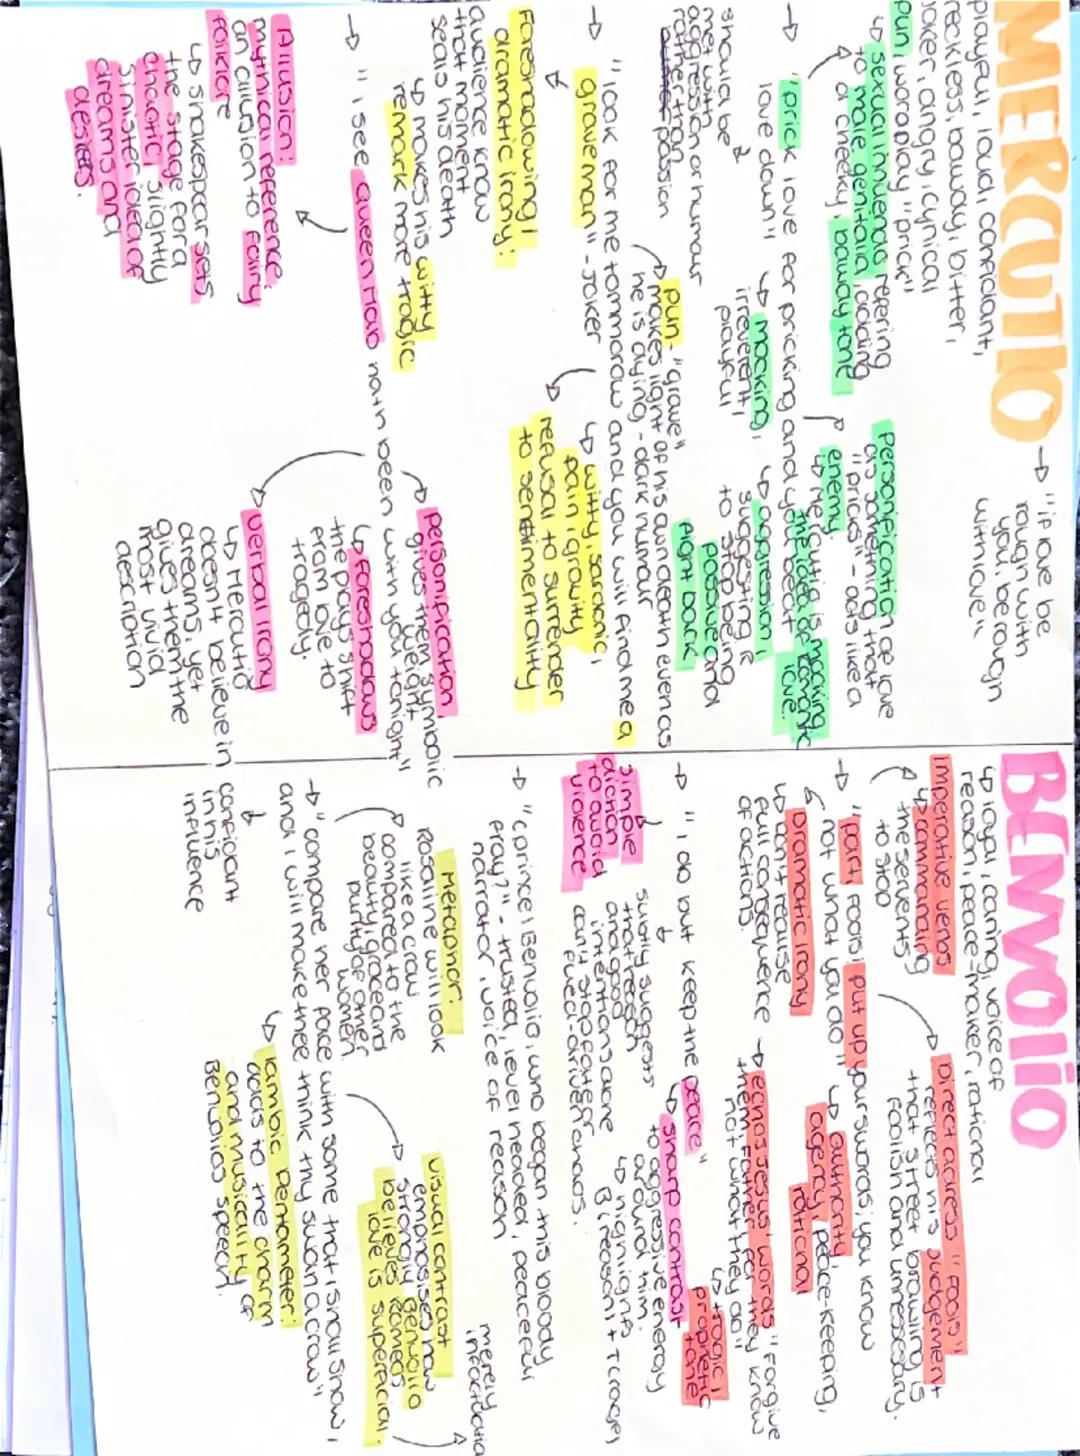 MERCUTIO → "if love be
rough with
you, be rough
with love"
playful, loud, confidant,
reckless, bawdy, bitter,
joker, angry, cynical
pun, wordplay "prick"
↳ sexual innuendo refering
to male genitalia, adding
a cheeky, baway tone
Personification of love
as something that
"pricks" - acts like a
enemy
↳ Mercutio is mocking
the idea of romantic
love.
→ "prick love for pricking and you beat
love down"
should be
met with
aggression or humour
rather than passion
↳ mocking,
irreverent,
playful
↳ aggression,
suggesting R
to stop being
passive and
fight back
pun - "grave"
makes light of his own death even as
he is dying - dark humour
→ "look for me tommorow and you will find me a
grave man" - JOKER
Foreshadowing/
dramatic irony:
audience know
that moment
seals his death
↳ makes his witty
remark more tragic
↳ witty, sardonic,
pain, gravity
refusal to surrender
to sentimentality
→ "I see Queen Mab hath been with you tonight"
Allusion:
mythical reference.
an allusion to fairy
folklore
↳ shakespear sets
the stage for a
chaotic, slightly
sinister idea of
dreams and
desires.
personification
gives them symbolic
weight
↳ foreshadows
the plays shift
from love to
tragedy.
verbal irony
↳ Mercutio
doesn't believe in
dreams, yet
gives them the
most vivid
description
BENVOLIO
↳ loyal, caring, voice of
reason, peace-maker, rational
imperative verbs
↳ commanding
the servents
to stop
Direct address "fools"
reflects his judgement
that street brawling is
foolish and unnessesary.
→ "part, fools! put up your swords; you know
not what you do"
Dramatic irony
↳ don't realise
full consequence
of actions.
↳ authority,
agency, peace-keeping,
rational
→ echos Jesus' words "forgive
them Father for they know
not what they do"
↳ tragic/
prophetic
tone
→ "I do but keep the peace"
simple
diction
to avoid
violence
subtly suggests
that reason
and good
intentions alone
can't stop
fued-driven chaos.
↳ sharp contrast
to aggressive energy
around him.
↳ highlights
B (reason) + T (rage)
→ "(prince) Benvolio, who began this bloody
fray?" - trusted, level headed, peaceful
narrator, voice of reason
Metaphor:
Rosaline will look
like a crow
compared to the
beauty, grace and
purity of other
women
visual contrast
emphosises how
strongly Benvolio
believes Romeos
love is superficial.
merely
→ "compare her face with some that I shall show,
and I will make thee think thy swan a crow"
confidant
in his
influence
↳ Iambic pentameter:
adds to the charm
and musicality of
Benvolios speech.